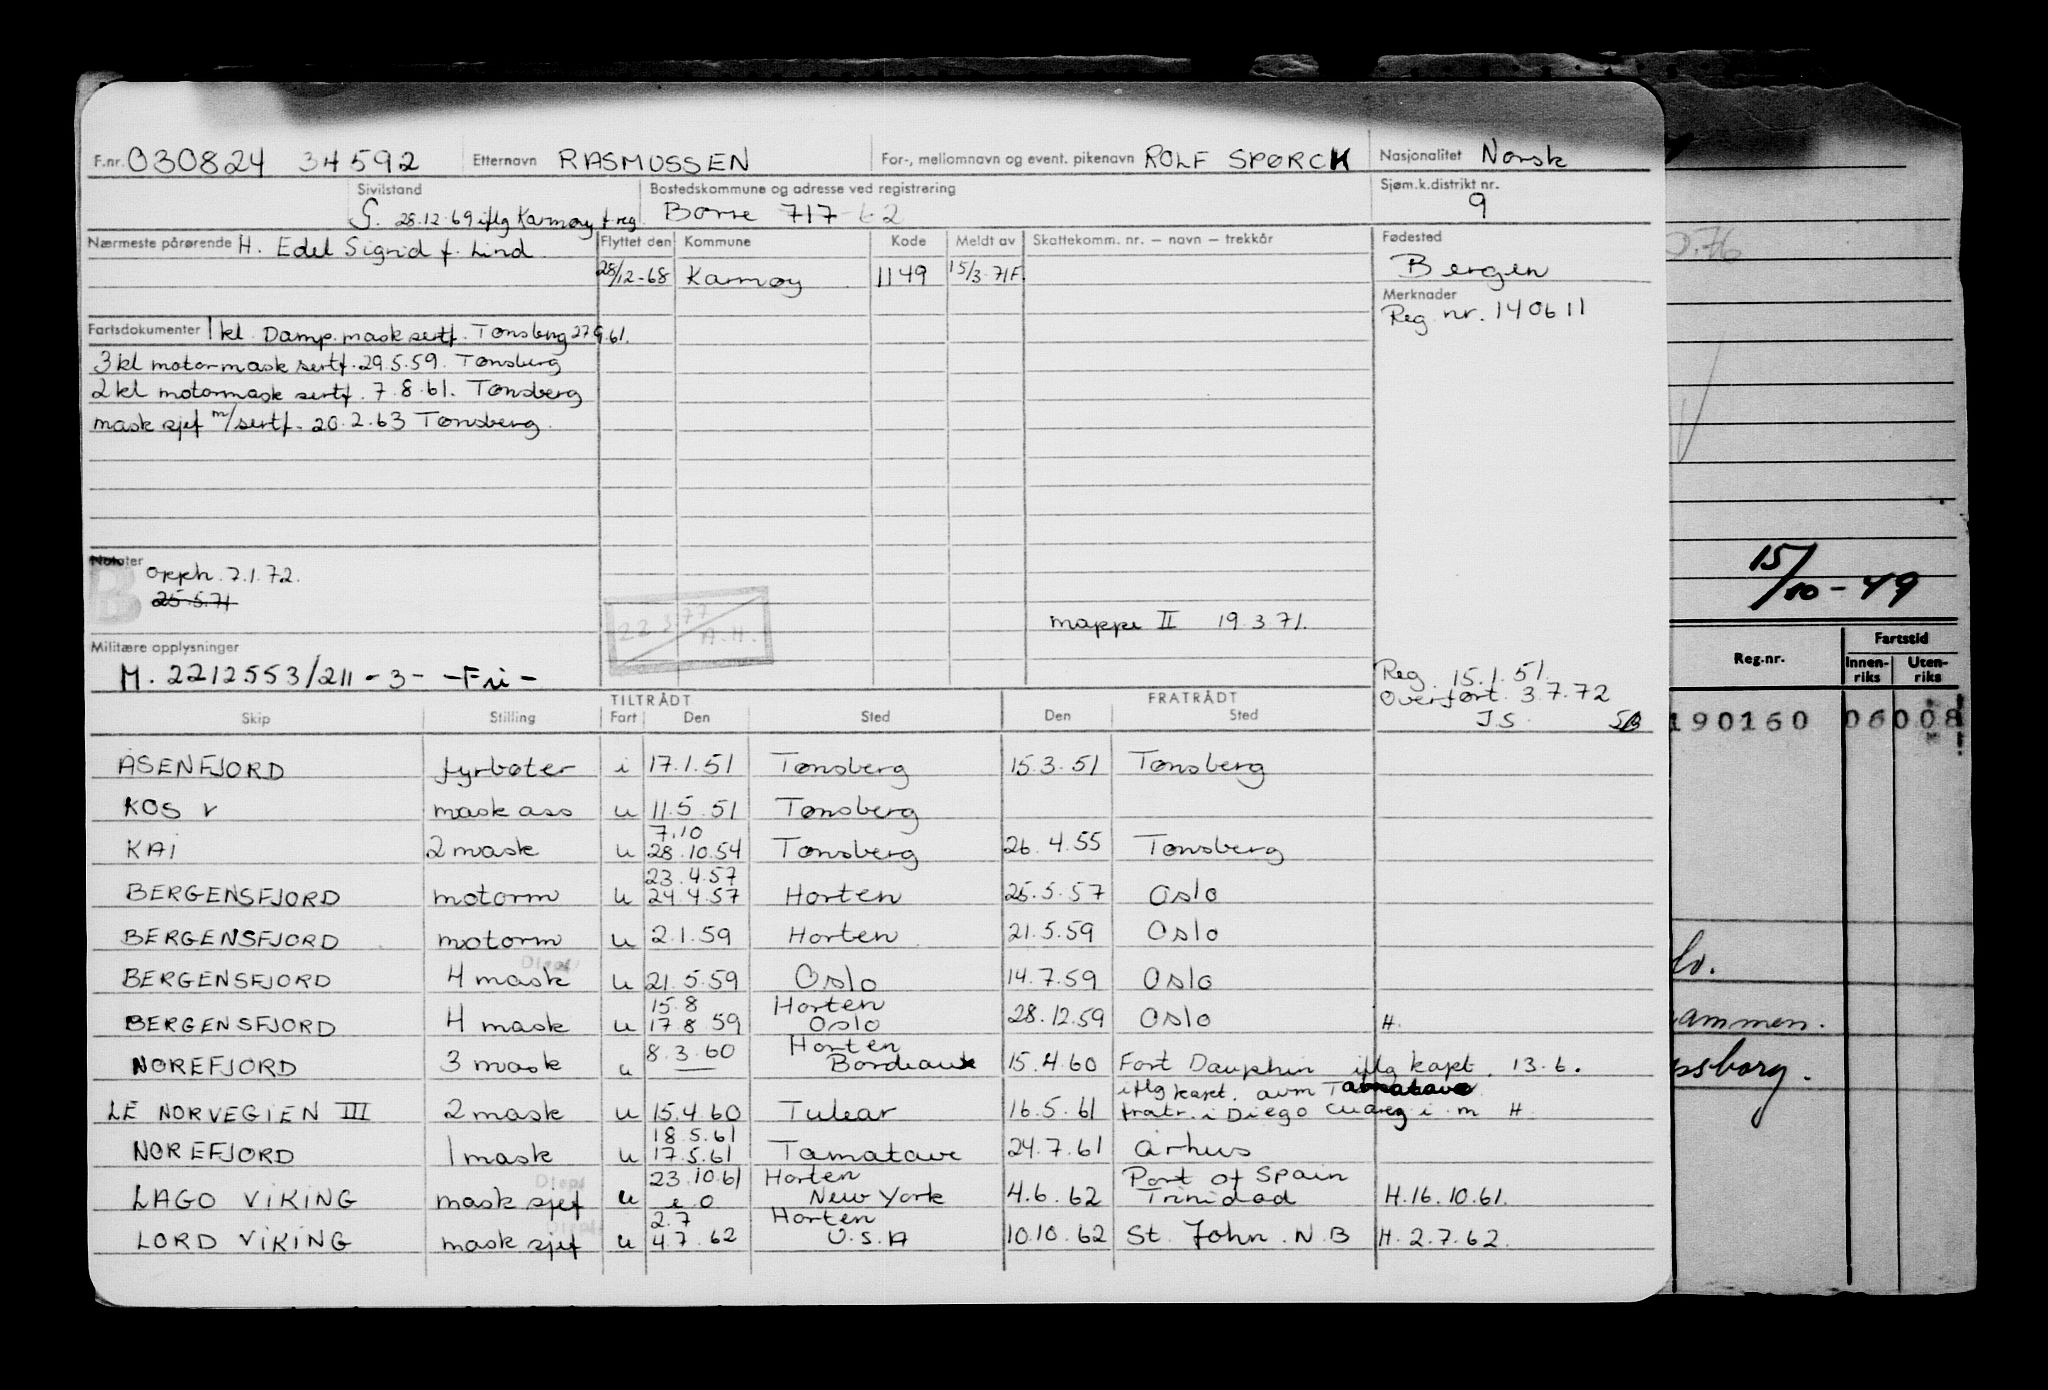 F.nr. 030824 34592 Etternavn RASMUSSEN For-, mellomnavn og event. pikenavn ROLF SPØRCK Nasjonalitet Norsk
Sivilstand Bostedskommune og adresse ved registrering Sjøm.k.distrikt nr.
G. 28.12.69 iflg Karmøy f.reg. Borre 717 9
Nærmeste pårørende H. Edel Sigrid f. Lind Flyttet den Kommune Kode Meldt av Skattekomm. nr. – navn – trekkår Fødested
28/12-68 Karmøy 1149 15/3.71F. Bergen
Merknader
Reg nr. 140611
Fartsdokumenter 1 kl. Damp.mask sertf. Tønsberg 27.9.61.
3 kl motormask sertf. 29.5.59. Tønsberg
2 kl motormask sertf. 7.8.61. Tønsberg
mask sjef m/sertf. 20.2.63 Tønsberg.
Notater
B Opph. 7.1.72.
25.5.71
22 3 77 A.H.
mappe II 19 3 71.
Militære opplysninger
M. 2212553/211 - 3 - -Fri-
Reg 15.1.51.
Overført. 3.7.72
J.S. SB
TILTRÅDT FRATRÅDT
Skip Stilling Fart Den Sted Den Sted
ÅSENFJORD fyrbøter i 17.1.51 Tønsberg 15.3.51 Tønsberg
KOS V mask ass u 11.5.51 Tønsberg
7.10
KAI 2 mask u 28.10.54 Tønsberg 26.4.55 Tønsberg
23.4.57
BERGENSFJORD motorm u 24.4.57 Horten 25.5.57 Oslo
BERGENSFJORD motorm u 2.1.59 Horten 21.5.59 Oslo
Disps
BERGENSFJORD 4 mask u 21.5.59 Oslo 14.7.59 Oslo
15.8 Horten
BERGENSFJORD 4 mask u 17 8 59 Oslo 28.12.59 Oslo H.
8.3.60 Horten
NOREFJORD 3 mask u — Bordeaux 15.4.60 Fort Dauphin iflg kapt. 13.6.
iflg kapt. avm Tamatave
LE NORVEGIEN III 2 mask u 15.4.60 Tulear 16.5.61 fratr. i Diego Cuarez i. m H.
18.5.61
NOREFJORD 1 mask u 17.5.61 Tamatave 24.7.61 Århus
Disps 23.10.61 Horten Port of Spain
LAGO VIKING mask sjef u e.O New York 4.6.62 Trinidad H.16.10.61.
Disps 2.7 Horten
LORD VIKING mask sjef u 4.7.62 U.S.A 10.10.62 St. John. N.B H.2.7.62.
15/10-49
Reg.nr. Fartstid
Innenriks Utenriks
190160 06008
lo.
ammen.
psborg.